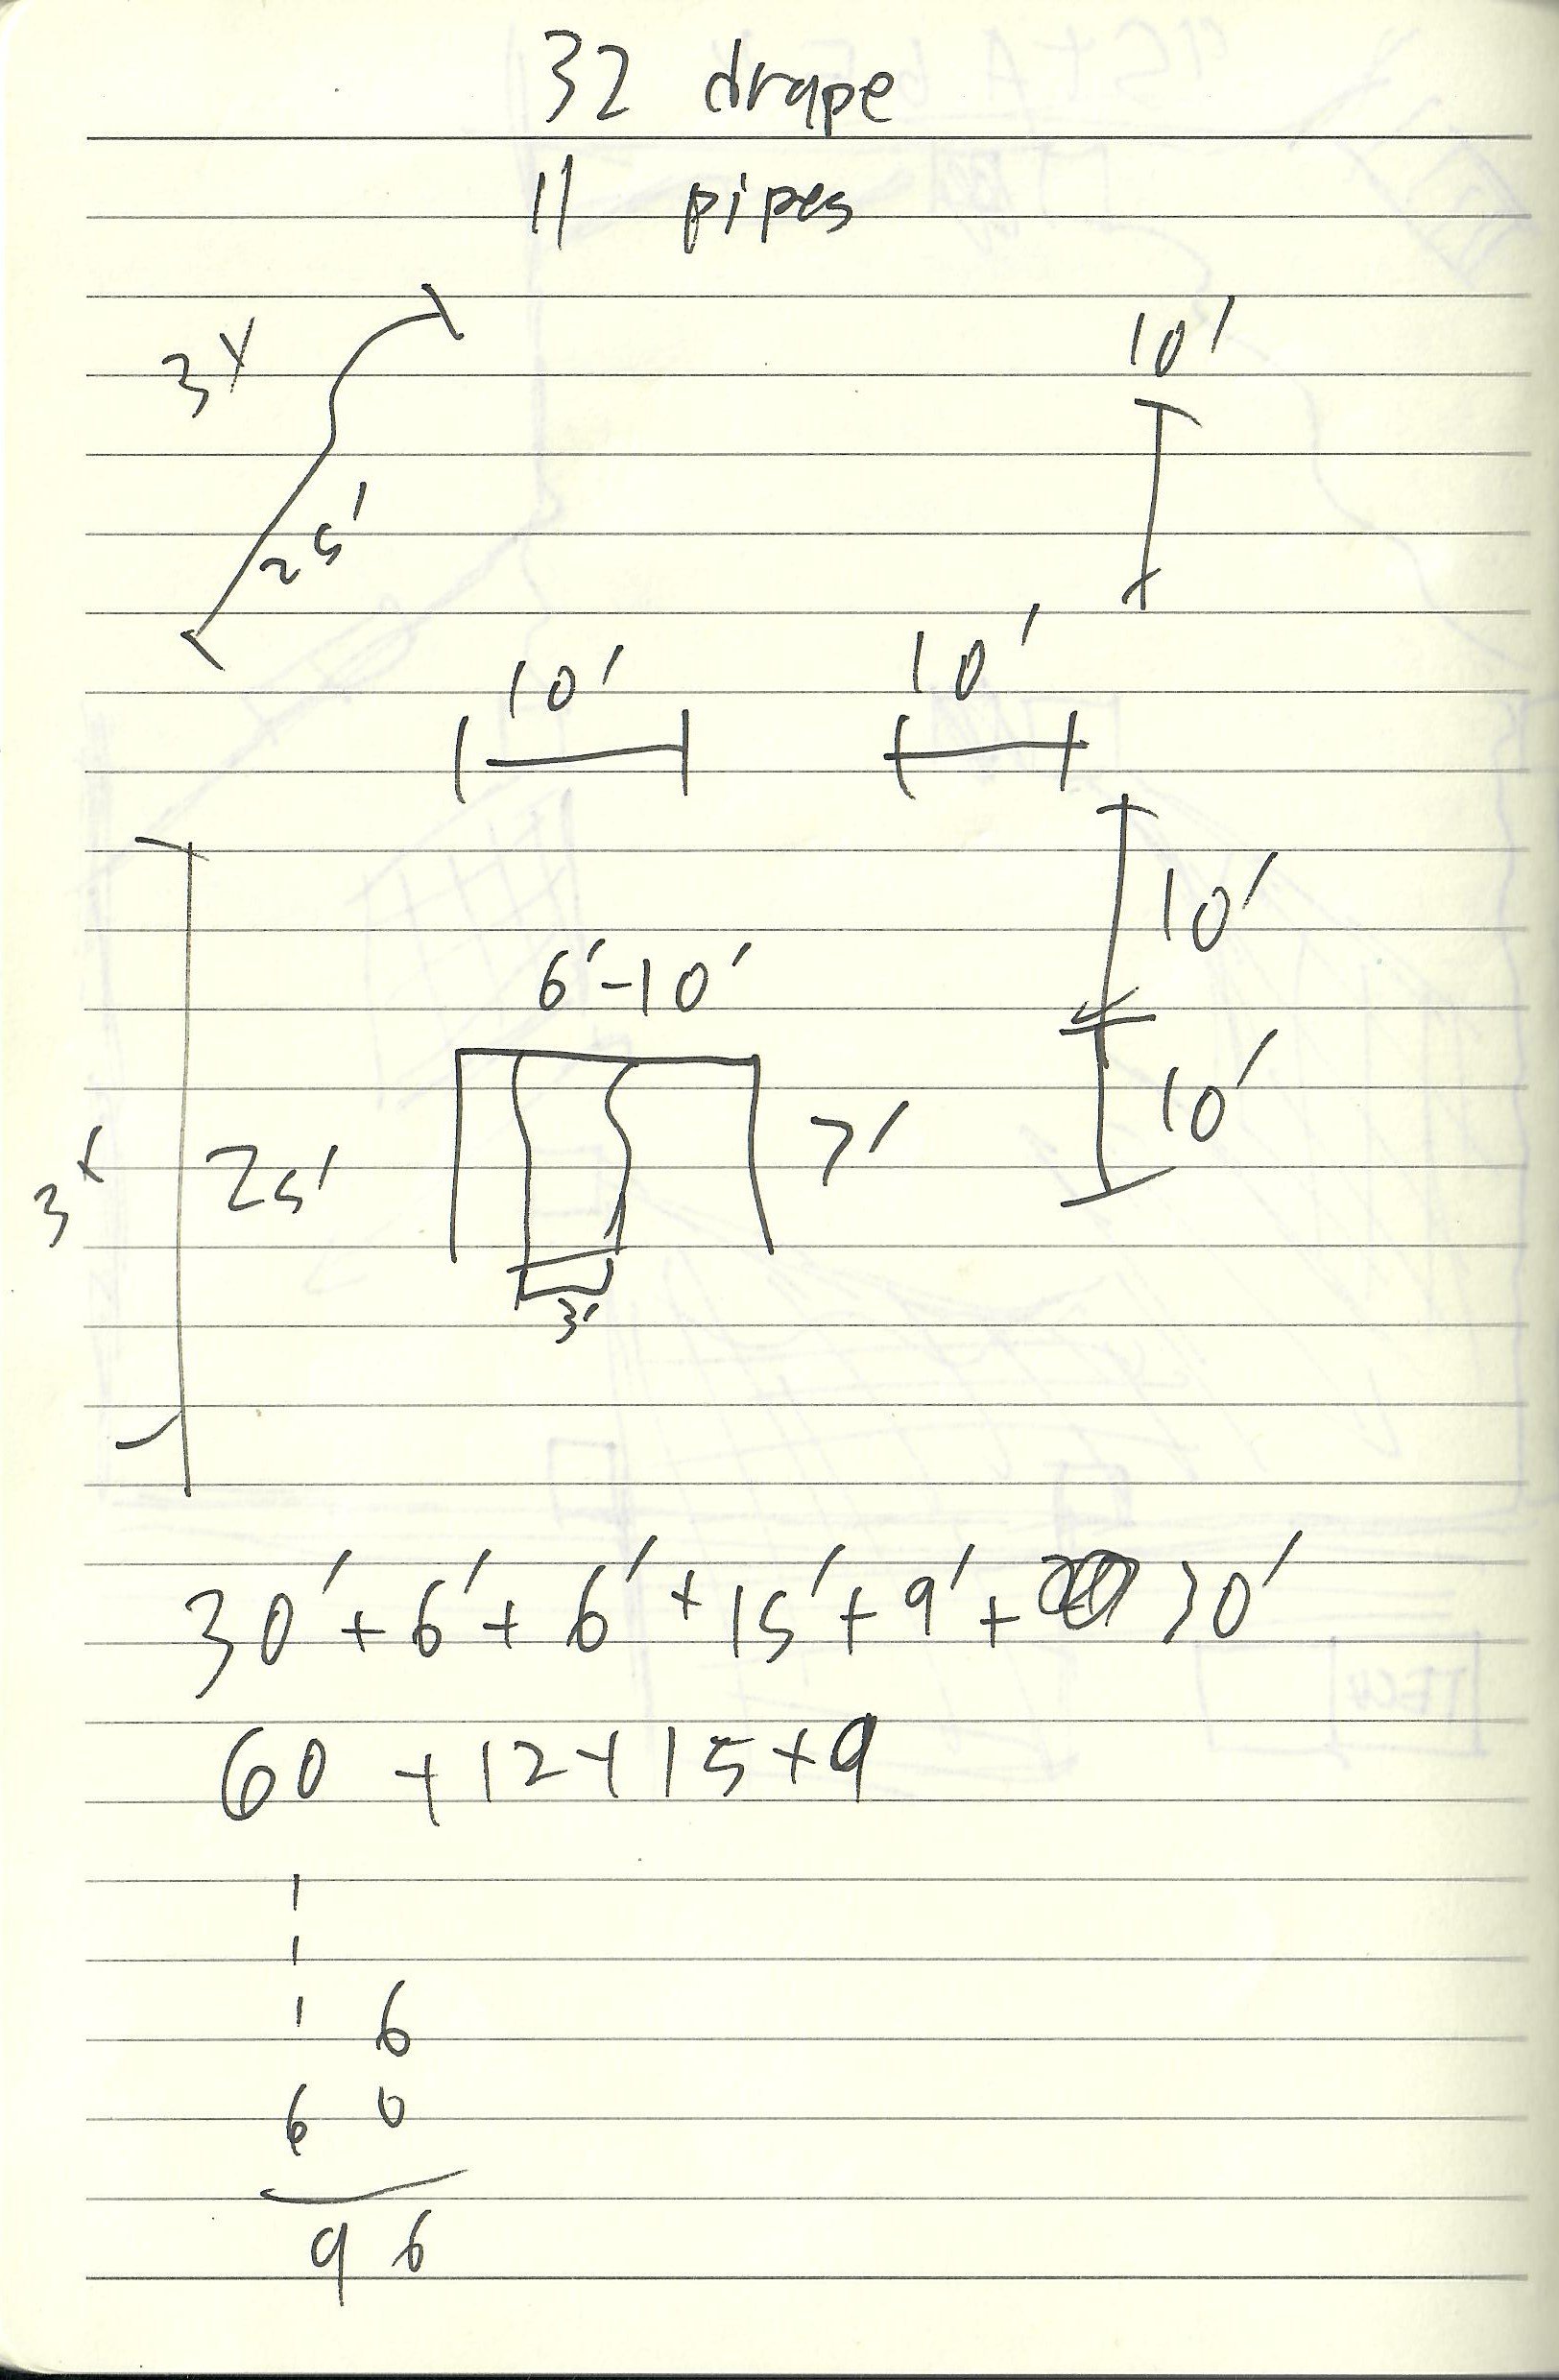 32 drape
11 pipes
3x
25'
10'
10'
10'
10'
6'-10'
10'
7'
3x
25'
3'
30' + 6' + 6' + 15' + 9' + 30'
60 + 12 + 15 + 9
1
1
1 6
6 0
9 6